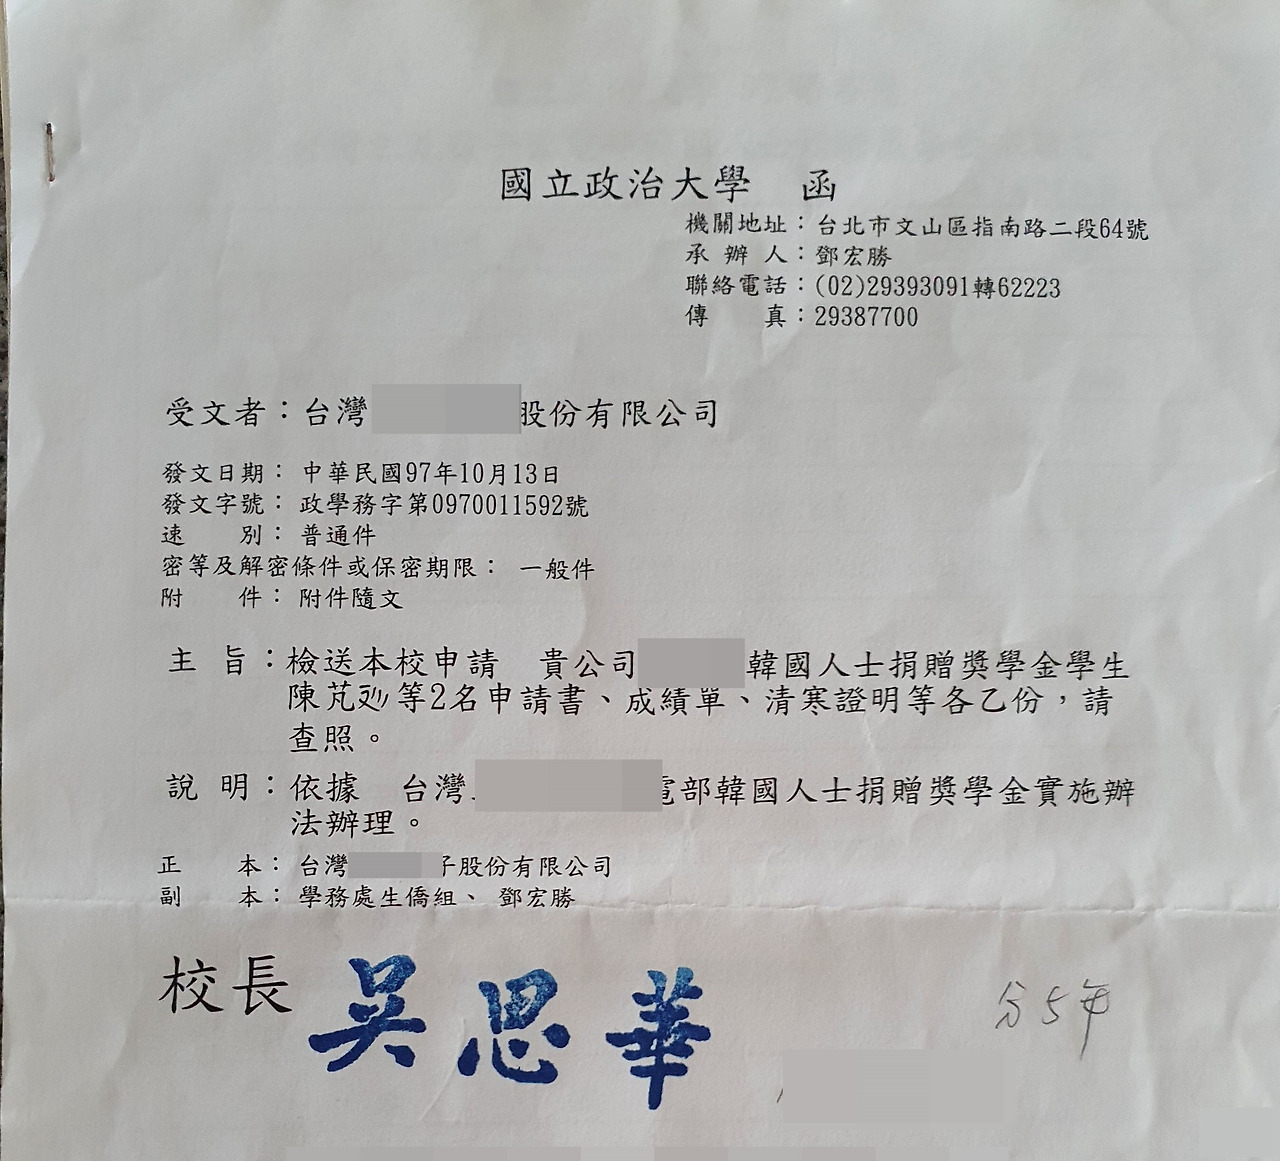 國立政治大學 函
機關地址：台北市文山區指南路二段64號
承辦人：鄧宏勝
聯絡電話：(02)29393091轉62223
傳 真：29387700
受文者：台灣 股份有限公司
發文日期：中華民國97年10月13日
發文字號：政學務字第0970011592號
速 別：普通件
密等及解密條件或保密期限：一般件
附 件：附件隨文
主 旨：檢送本校申請 貴公司 韓國人士捐贈獎學金學生
陳芃 等2名申請書、成績單、清寒證明等各乙份，請
查照。
說 明：依據 台灣 電部韓國人士捐贈獎學金實施辦
法辦理。
正 本：台灣 子股份有限公司
副 本：學務處生僑組、 鄧宏勝
校長 吳思華
5年